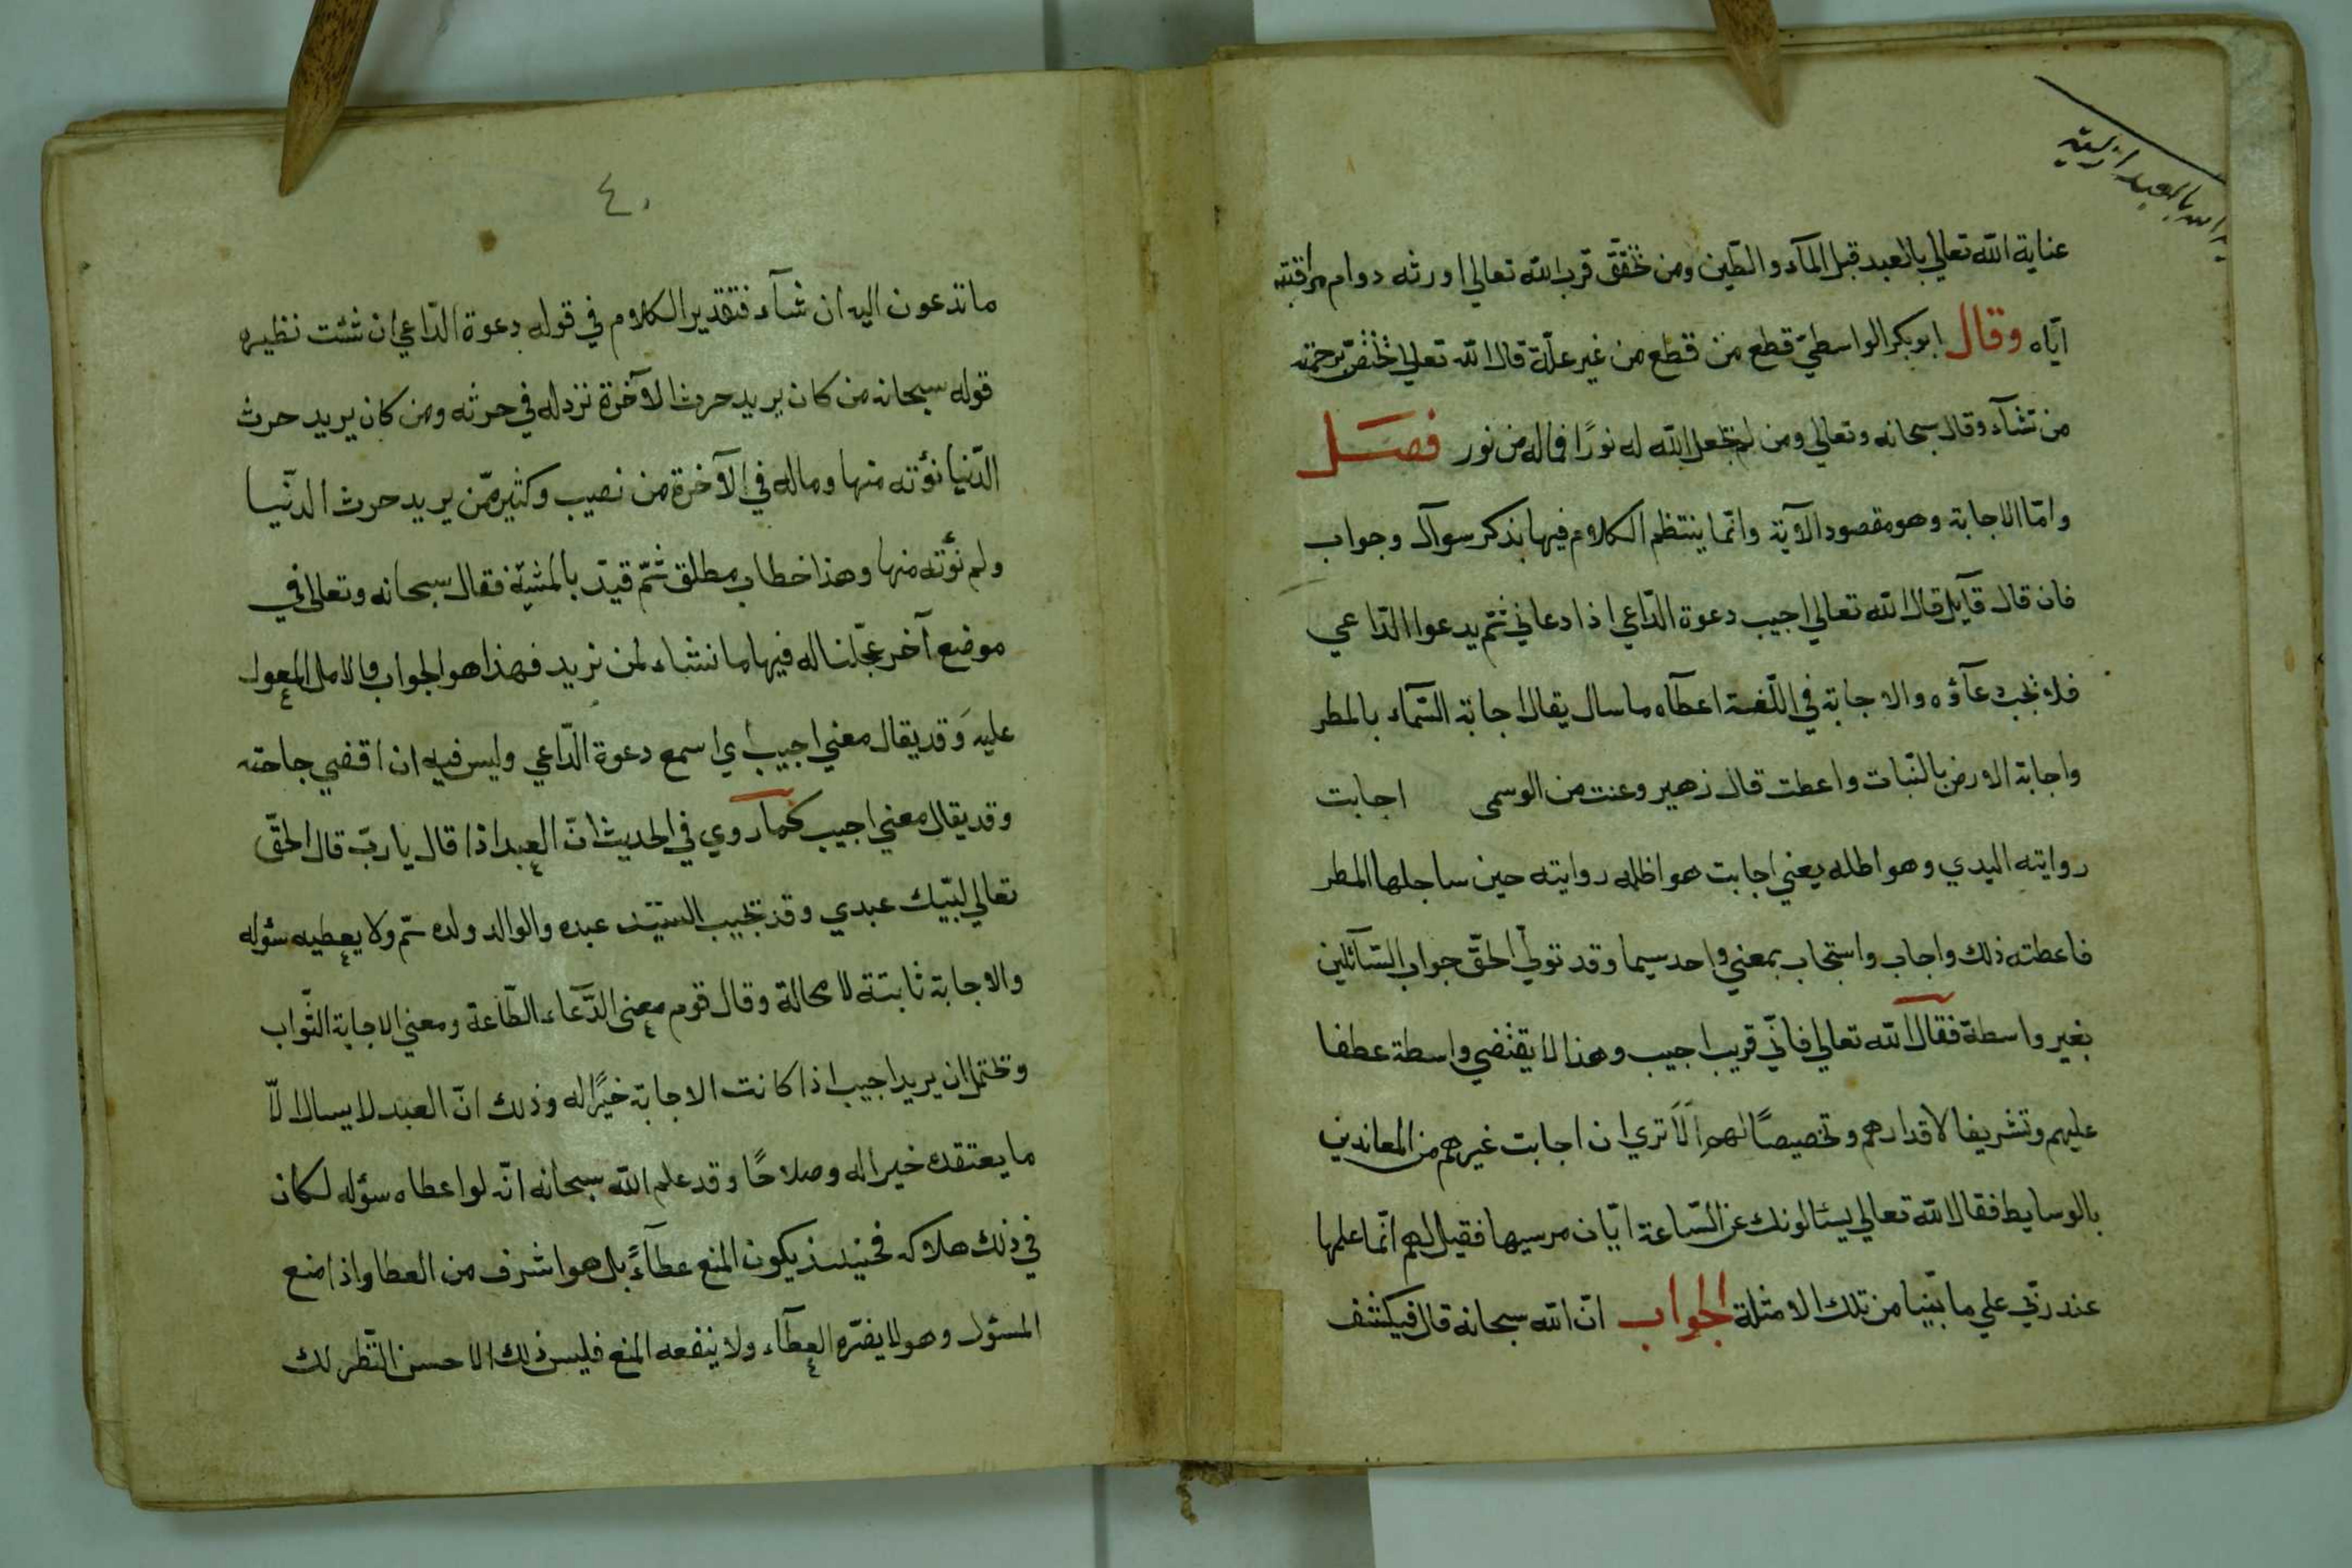 عناية الله تعالي بالعبد قبل المآء والطّين ومن تحقّق قرب الله تعالي اورثه دوام مراقبته
ايّاه وقال ابو بكر الواسطيّ قطع من قطع من غير علّة قال الله تعالي يختصّ برحمته
من تشآء وقال سبحانه وتعالي ومن لم يجعل الله له نورًا فماله من نور فصل
وامّا الاجابة وهو مقصود الآية وانّما ينتظم الكلام فيها بذكر سوآل وجواب
فان قال قآيل قال الله تعالي اجيب دعوة الدّاعي اذا دعاني ثمّ يدعوا الدّاعي
فلا تجب دعآؤه والاجابة في اللّغة اعطآه ما سال يقال اجابة السّمآء بالمطر
واجابة الارض بالنّبات واعطت قال زهير وعنت من الوسمى اجابت
روايته اليدي وهواطله يعني اجابت هواطله روايته حين ساجلها المطر
فاعطته ذلك واجاب واستجاب بمعني واحد سيما وقد تولّي الحقّ جواب السّآئلين
بغير واسطة فقال الله تعالي فانّي قريب اجيب وهذا لا يقتضي واسطة عطفا
عليهم وتشريفا لاقدارهم وتخصيصًا لهم اَلَا تري ان اجابت غيرهم من المعاندين
بالوسايط فقال الله تعالي يسئالونك عن السّاعة ايّان مرسيها فقيل لهم انّما علمها
عند ربّي علي ما بيّنا من تلك الامثلة الجواب انّ الله سبحانه قال فيكشف
٤٠
ما تدعون اليه ان شآء فتقدير الكلام في قوله دعوة الدّاعي ان شئت نظيره
قوله سبحانه من كان يريد حرث الآخرة نزد له في حرثه ومن كان يريد حرث
الدّنيا نؤته منها وماله في الآخرة من نصيب وكثير ممّن يريد حرث الدنّيا
ولم نؤته منها وهذا خطاب مطلق ثمّ قيدّ بالمشيّة فقال سبحانه وتعالى في
موضع آخر عجّلنا له فيها ما نشاء لمن نريد فهذا هو الجواب والامل المعول
عليه وَقد يقال معني اجيب أي اسمع دعوة الدّاعي وليس فيه ان اقضي جاحته
وقد يقال معني اجيب كما روي في الحديث انّ العبد اذا قال يا ربّ قال الحقّ
تعالي لبّيك عبدي وقد تجيب السّيّد عبده والوالد ولده ثمّ ولا يعطيه سئوله
والاجابة ثابتة لا محالة وقال قوم معنى الدّعآء الطّاعة ومعني الاجابة الثّواب
وتحتمل ان يريد اجيب اذا كانت الاجابة خيرًا له وذلك انّ العبد لا يسال الاّ
ما يعتقده خيرا له وصلاحًا وقد علم الله سبحانه انّه لو اعطاه سؤله لكان
في ذلك هلاكه فحينئذ يكون المنع عطآءً بل هو اشرف من العطا واذا منع
المسئول وهو لا يضرّه العطآء ولا ينفعه المنع فليس ذلك الا حسن النّظر لك